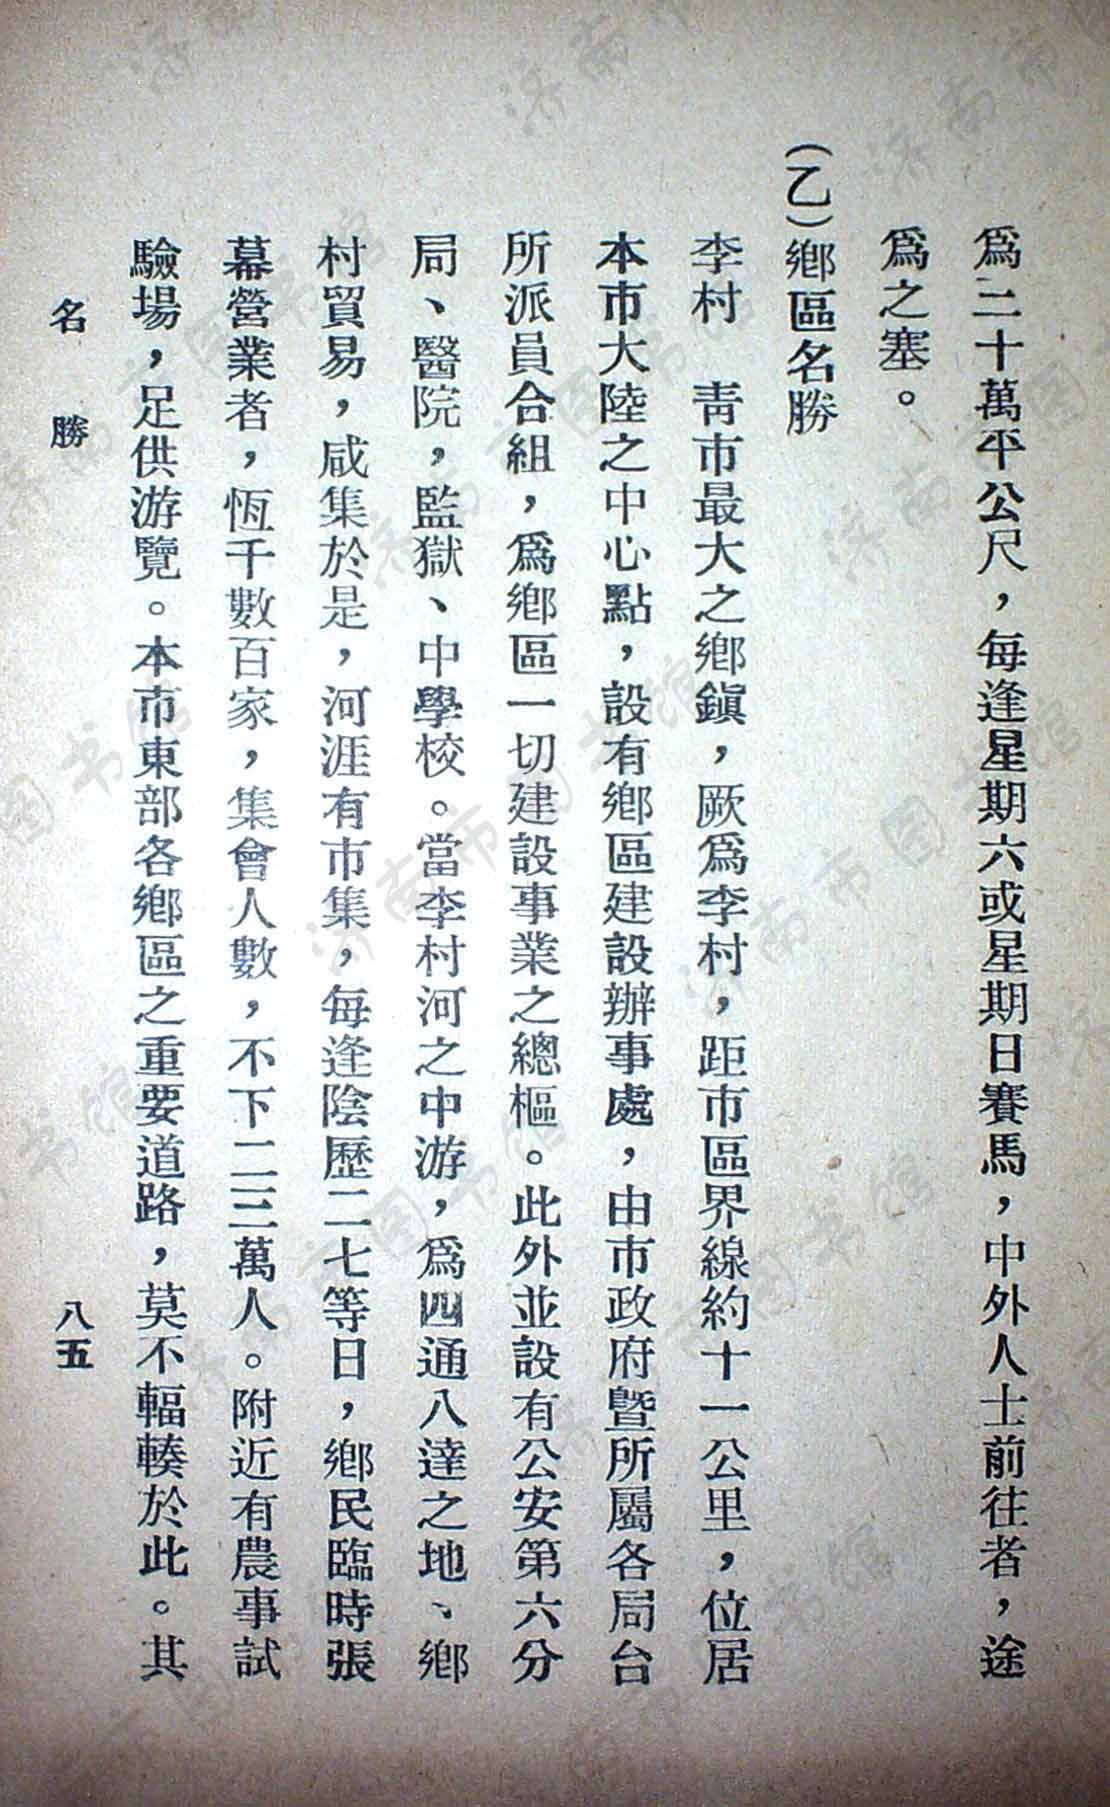 爲二十萬平公尺，每逢星期六或星期日賽馬，中外人士前往者，途
爲之塞。
（乙）鄉區名勝
李村　靑市最大之鄉鎭，厥爲李村，距市區界線約十一公里，位居
本市大陸之中心點，設有鄉區建設辦事處，由市政府曁所屬各局台
所派員合組，爲鄉區一切建設事業之總樞。此外並設有公安第六分
局、醫院，監獄、中學校。當李村河之中游，爲四通八達之地、鄉
村貿易，咸集於是，河涯有市集，每逢陰歷二七等日，鄉民臨時張
幕營業者，恆千數百家，集會人數，不下二三萬人。附近有農事試
驗場，足供游覽。本市東部各鄉區之重要道路，莫不輻輳於此。其
名勝
八五
济南市图书馆